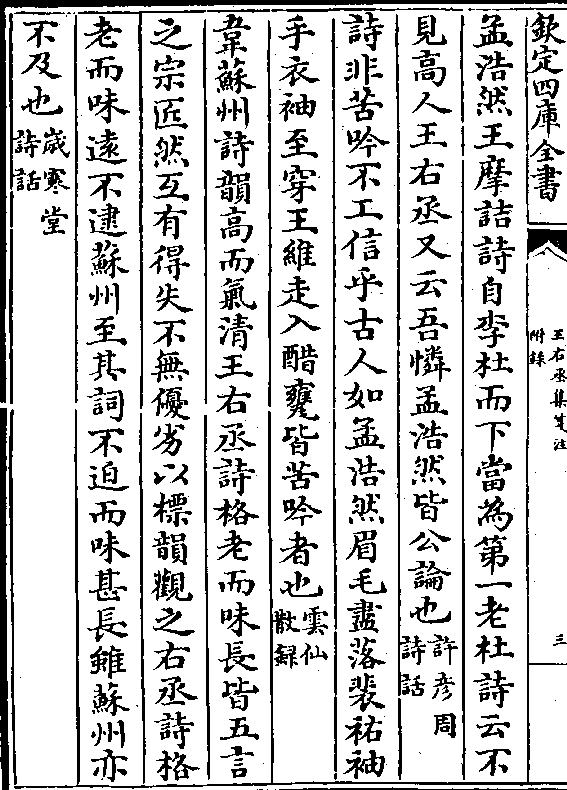 欽定四庫全書
王右丞集箋注
附錄
三
孟浩然王摩詰詩自李杜而下當為第一老杜詩云不
見高人王右丞又云吾憐孟浩然皆公論也許彦周
詩話
詩非苦吟不工信乎古人如孟浩然眉毛盡落裴祐袖
手衣袖至穿王維走入醋甕皆苦吟者也雲仙
散録
韋蘇州詩韻高而氣清王右丞詩格老而味長皆五言
之宗匠然互有得失不無優劣以標韻觀之右丞詩格
老而味遠不逮蘇州至其詞不迫而味甚長雖蘇州亦
不及也歲寒堂
詩話